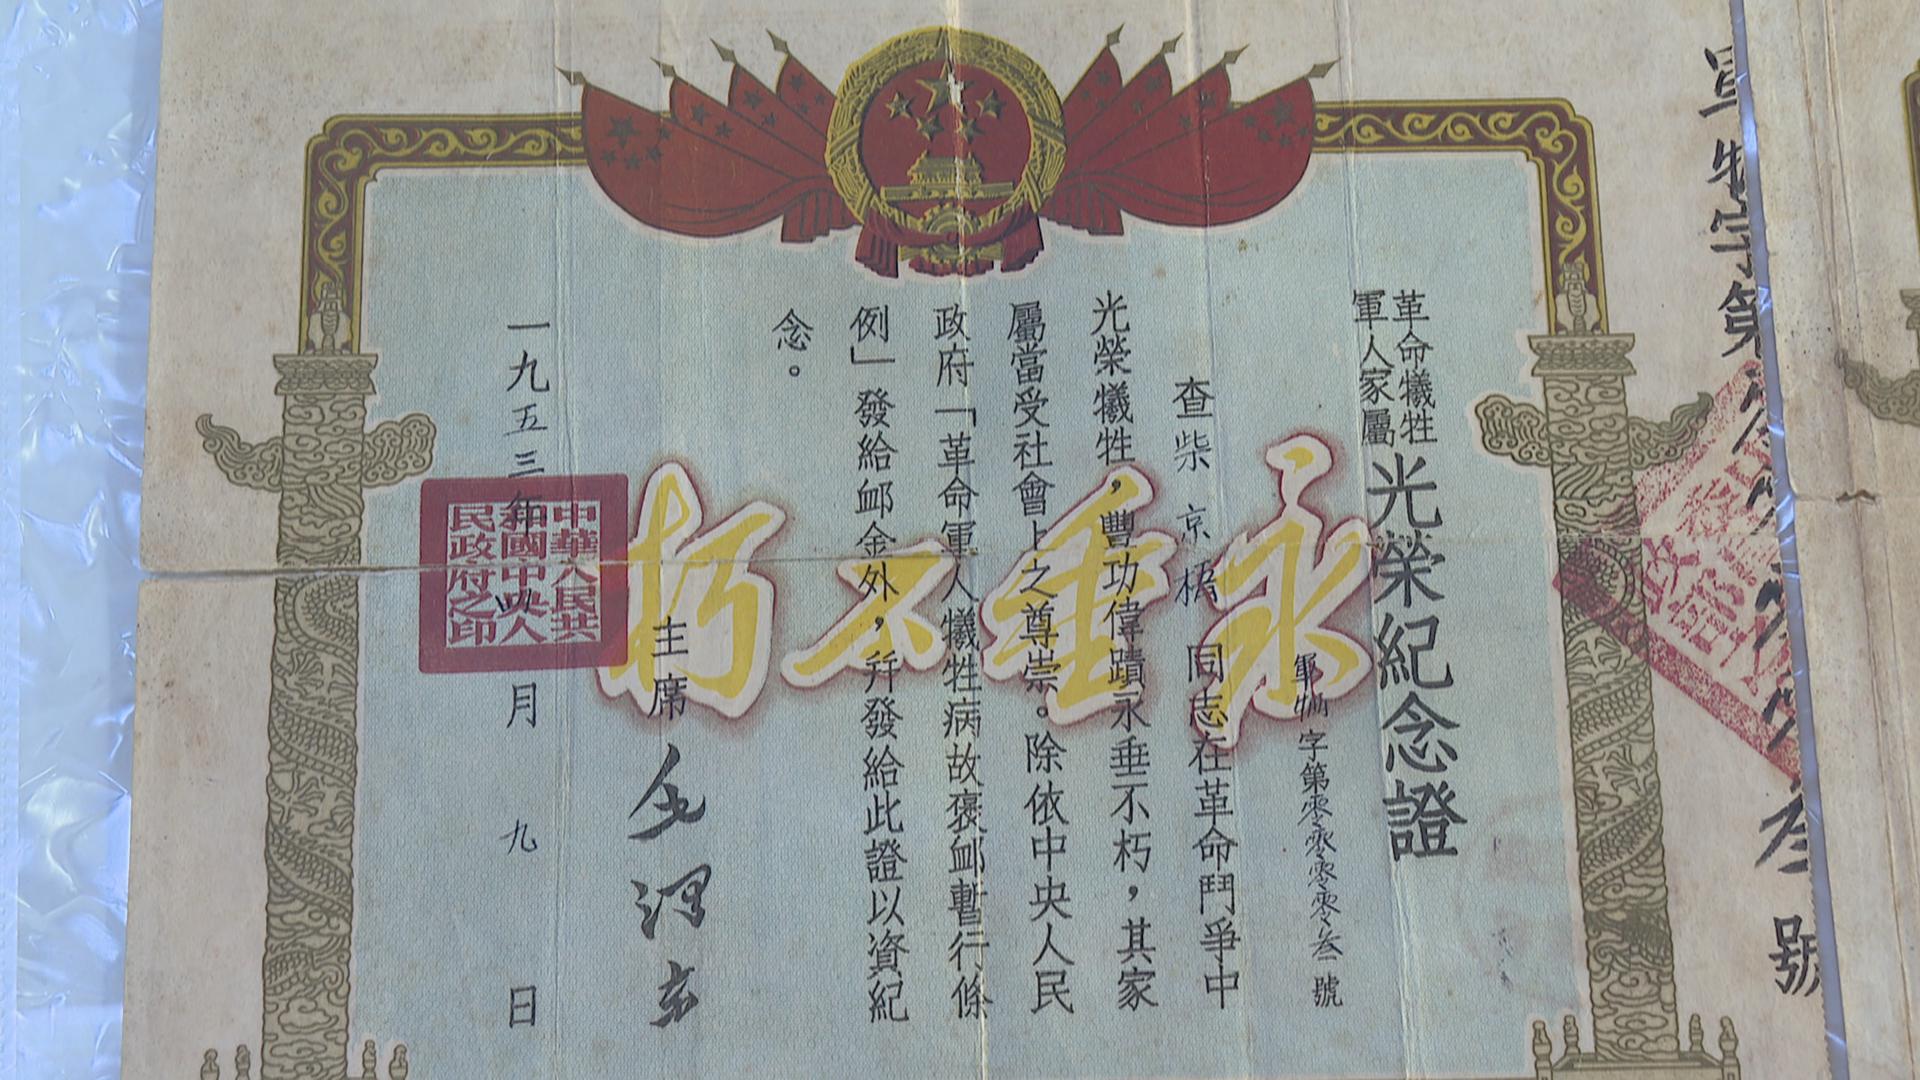 革命犧牲
軍人家屬
光榮紀念證
軍犧字第零零零零叁號
查柴京梧同志在革命鬥爭中
光榮犧牲，豐功偉蹟永垂不朽，其家
屬當受社會上之尊崇。除依中央人民
政府「革命軍人犧牲病故褒卹暫行條
例」發給卹金外，幷發給此證以資紀
念。
主席 毛澤東
一九五三年 月九日
永垂不朽
中華人民共
和國中央人
民政府之印
第
叁號